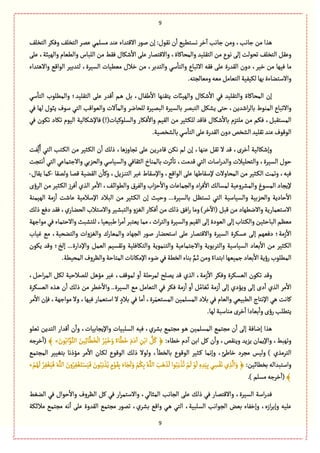 9
هذا من جانب ، ومن جانب آخر نستطيع أن نقول: إن صور الاقتداء عند مسلمي عصر التخلف وفكر التخلف
وعقل التخلف تحولت إلى نوع من التقليد والمحاكاة ، والاقتصار على الأشكال فقط من اللباس والطعام والهيئة ، على
ما فيها من خير ، دون القدرة على فقه الاتباع والتأسي والتدبر ، من خلال معطيات السيرة ، لتدبير الواقع والاهتداء
والاستضاءة بها لكيفية التعامل معه ومعالجته.
إن المحاكاة والتقليد في الأشكال والهيئات يتقنها الأطفال ، بل هم أقدر على التقليد ؛ والمطلوب التأسي
والاتباع المنوط بالراشدين ، حتى يشكل التبصر بالسيرة البصيرة للحاضر والمآلات والعواقب التي سوف يئول لها في
المستقبل ، فكم من ملتزم بالأشكال فاقد للكثير من القيم والأفكار والسلوكيات!! فالإشكالية اليوم تكاد تكون في
الوقوف عند تقليد الشخص دون القدرة على التأسي بالشخصية.
وإشكالية أخرى ، قد لا تقل عنها ، إن لم نكن قادرين على تجاوزها ، ذلك أن الكثير من الكتب التي أُلِّفت
حول السيرة ، والتحليلات والدراسات التي قدمت ، تأثرت بالمناخ الثقافي والسياسي والحزبي والاجتماعي التي أنتجت
فيه ، وتمت الكثير من المحاولات لإسقاطها على الواقع ، والإسقاط غير التنزيل ، وكأن القضية قصا ولصقا -كما يقال-
لإيجاد المسوغ والمشروعية لمسالك الأفراد والجماعات والأحزاب والفرق والطوائف ، الأمر الذي أفرز الكثير من الرؤى
الأحادية والحزبية والسياسية التي تستظل بالسيرة... وحيث إن الكثير من البلاد الإسلامية عاشت أزمة الهيمنة
الاستعمارية والاضطهاد من قبل (الآخر) وما رافق ذلك من أفكار الغزو والتبشير والاستلاب الحضاري ، فقد دفع ذلك
معظم الباحثين والكتاب إلى العودة إلى القيم والسيرة والتراث ، مما يعتبر أمرا طبيعيا ، للتشبث والاحتماء في مواجهة
الأزمة ؛ دفعهم إلى عسكرة السيرة والاقتصار على استحضار صور الجهاد والمعارك والغزوات والتضحية ، مع غياب
الكثير من الأبعاد السياسية والتربوية والاجتماعية والتنموية والتكافلية وتقسيم العمل والإدارة... إلخ ؛ وقد يكون
المطلوب رؤية الأبعاد جميعها ابتداءة ومن ثمَّ بناء الخطة في ضوء الإمكانات المتاحة والظروف المحيطة.
وقد تكون العسكرة وفكر الأزمة ، الذي قد يصلح لمرحلة أو لموقف ، غير مؤهل للصلاحية لكل المراحل ،
الأمر الذي أدى إلى ويؤدي إلى أزمة تَفاعُل أو أزمة فكر في التعامل مع السيرة... والأخطر من ذلك أن هذه العسكرة
كانت هي الإنتاج الطبيعي والعام في بلاد المسلمين المستعمَرة ، أما في بلادٍ لا استعمار فيها ، ولا مواجهة ، فإن الأمر
يتطلب رؤى وأبعادا أخرى مناسبة لها.
هذا إضافة إلى أن مجتمع المسلمين هو مجتمع بشري ، فيه السلبيات والإيجابيات ، وأن أقدار التدين تعلو
وتهبط ، والإيمان يزيد وينقص ، وأن كل ابن آدم خطاء: ﴿ كُلُّ ابْنِ آدَمَ خَطَّاءٌ وَخَيْرُ الْخَطَّائِينَ التَّوَّابُونَ» ﴾ (أخرجه
الترمذي ) وليس مجرد خاطئ، وإنما كثير الوقوع بالخطأ ، ولولا ذلك الوقوع لكان الأمر مؤذنا بتغيير المجتمع
واستبداله بخطائين: ﴿ «وَالَّذِي نَفْسِي بِيَدِهِ لَوْ لَمْ تُذْنِبُوا لَذَهَبَ اللَّهُ بِكُمْ وَلَجَاءَ بِقَوْمٍ يُذْنِبُونَ فَيَسْتَغْفِرُونَ اللَّهَ فَيَغْفِرُ لَهُمْ»
﴾ (أخرجه مسلم ).
فدراسة السيرة ، والاقتصار في ذلك على الجانب المثالي ، والاستمرار في كل الظروف والأحوال في الضغط
عليه وإبرازه ، وإخفاء بعض الجوانب السلبية ، التي هي واقع بشري ، تصور مجتمع القدوة على أنه مجتمع ملائكة
9